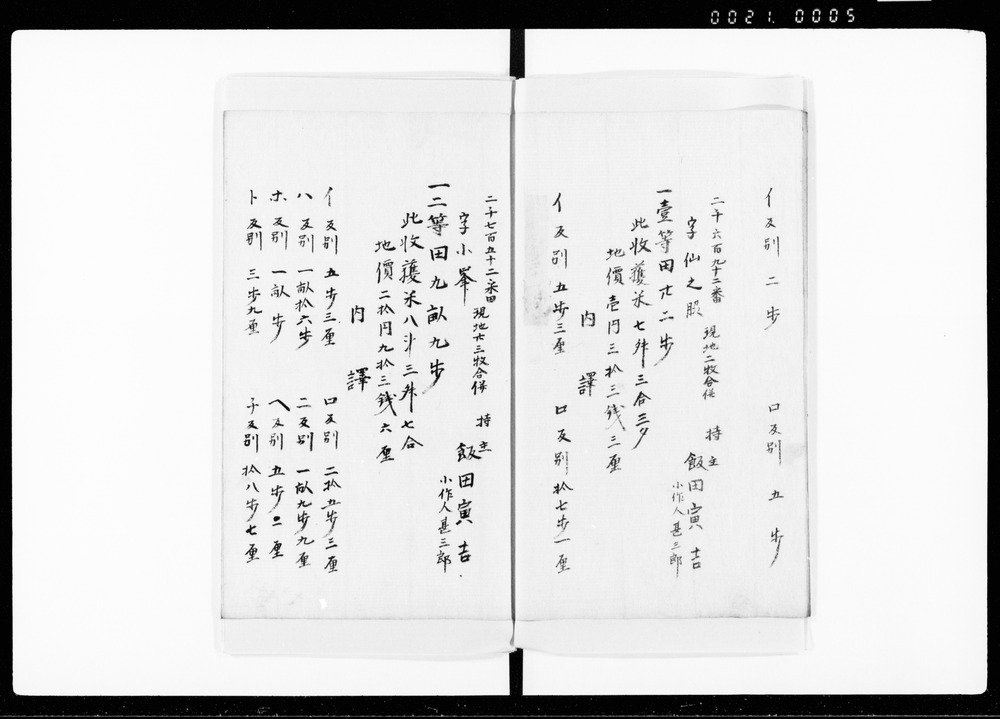 0021. 0005
イ反別 二歩 ロ反別 五歩
二千六百九十二番 現地二牧合併
字仙之 持主 飯田寅吉
小作人甚三郎
一壹等田廿二歩
此收獲米七舛三合三夕
地價壱円三拾三銭三厘
内譯
イ反別 五歩三厘 ロ反別 拾七歩一厘
二千七百五十二番 現地廿三牧合併
字小峯 持主 飯田寅吉
小作人甚三郎
一二等田九畝九歩
此收獲米八斗三舛七合
地價二拾円九拾三銭六厘
内譯
イ反別 五歩三厘 ロ反別 二拾五歩三厘
ハ反別 一畝拾六歩 ニ反別 一畝九歩九厘
ホ反別 一畝歩 ヘ反別 五歩二厘
ト反別 三歩九厘 チ反別 拾八歩七厘